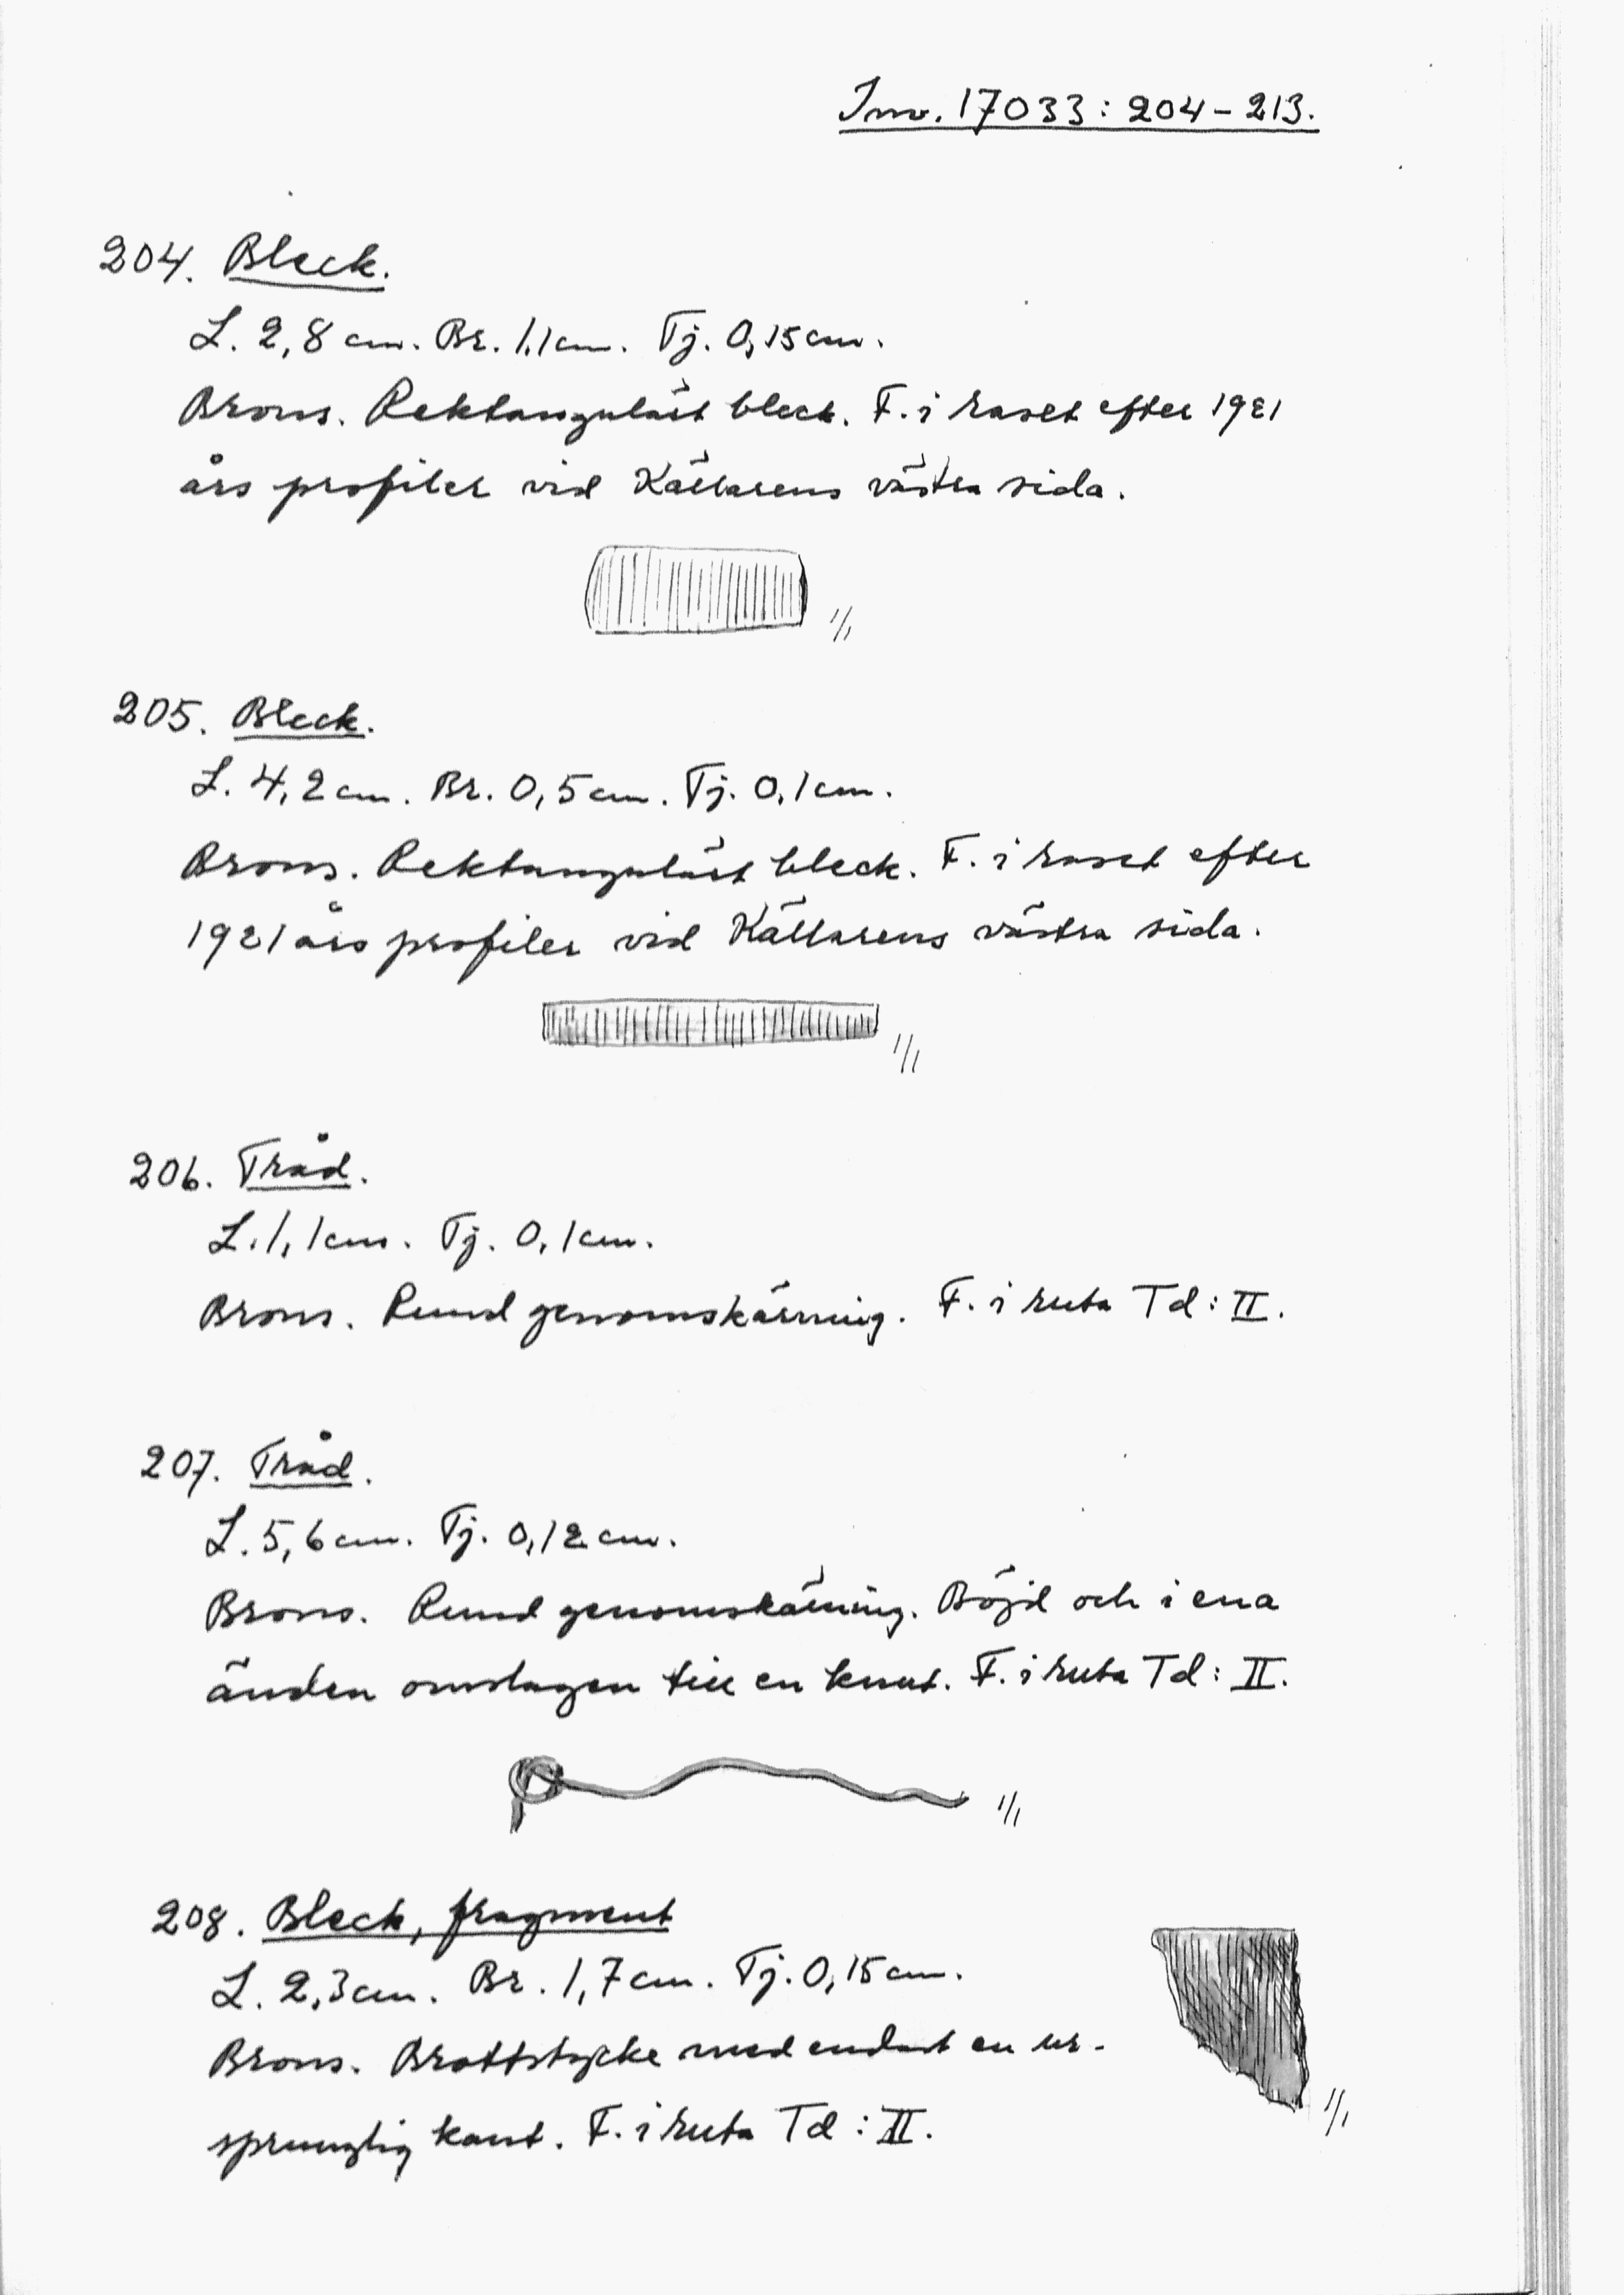 Inv. 17033: 204-213.
204. Bleck.
L. 2,8 cm. Br. 1,1 cm. Tj. 0,15 cm.
Brons. Rektangulärt bleck. F. i raset efter 1921
års profiler vid Källarens västra sida.
1/1
205. Bleck.
L. 4,2 cm. Br. 0,5 cm. Tj. 0,1 cm.
Brons. Rektangulärt bleck. F. i raset efter
1921 års profiler vid Källarens västra sida.
1/1
206. Tråd.
L. 1,1 cm. Tj. 0,1 cm.
Brons. Rund genomskärning. F. i ruta Td: II.
207. Tråd.
L. 5,6 cm. Tj. 0,12 cm.
Brons. Rund genomskärning. Böjd och i ena
änden omslagen till en knut. F. i ruta Td: II.
1/1
208. Bleck, fragment
L. 2,3 cm. Br. 1,7 cm. Tj. 0,15 cm.
Brons. Brottstycke med endast en ur-
sprunglig kant. F. i ruta Td: II.
1/1